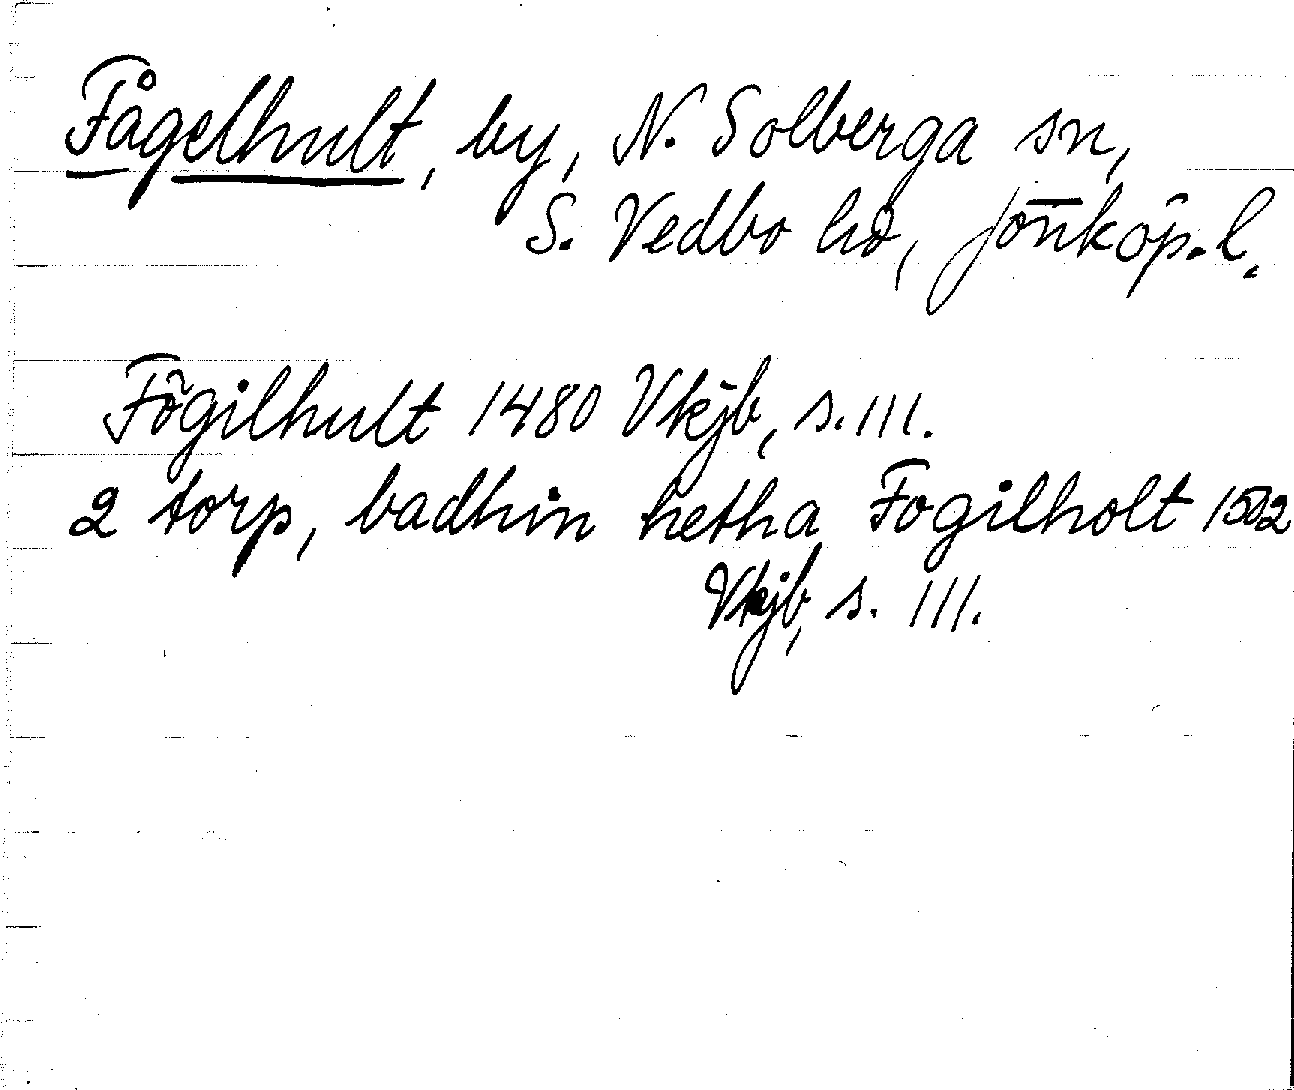 Fågelhult, by, N. Solberga sn,
S. Vedbo hd, Jönköp. l.
Fögilhult 1480 Vkjb, s. 111.
2 torp, badhin hetha Fogilholt 1502
Vkjb, s. 111.